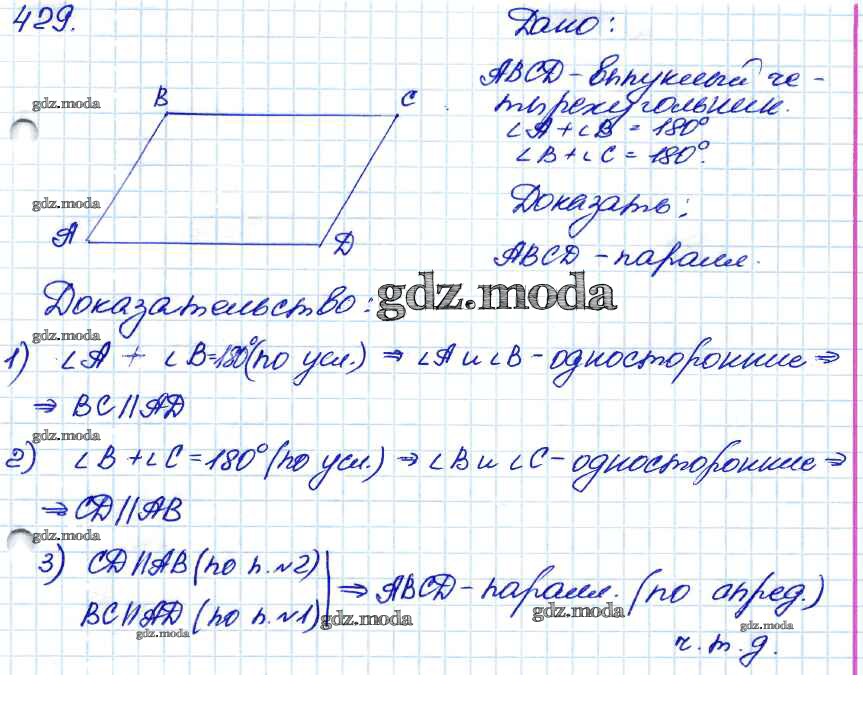 429.
Дано:
ABCD - выпуклый че-
тырехугольник.
∠A + ∠B = 180°
∠B + ∠C = 180°.
Доказать:
ABCD - паралл.
B
C
A
D
gdz.moda
gdz.moda
Доказательство:
gdz.moda
gdz.moda
1) ∠A + ∠B = 180° (по усл.) ⇒ ∠A и ∠B - односторонние ⇒
⇒ BC || AD
gdz.moda
2) ∠B + ∠C = 180° (по усл.) ⇒ ∠B и ∠C - односторонние ⇒
⇒ CD || AB
gdz.moda
3) CD || AB (по п. №2)
BC || AD (по п. №1)
⇒ ABCD - паралл. (по опред.)
gdz.moda
gdz.moda
gdz.moda
gdz.moda
ч.т.д.